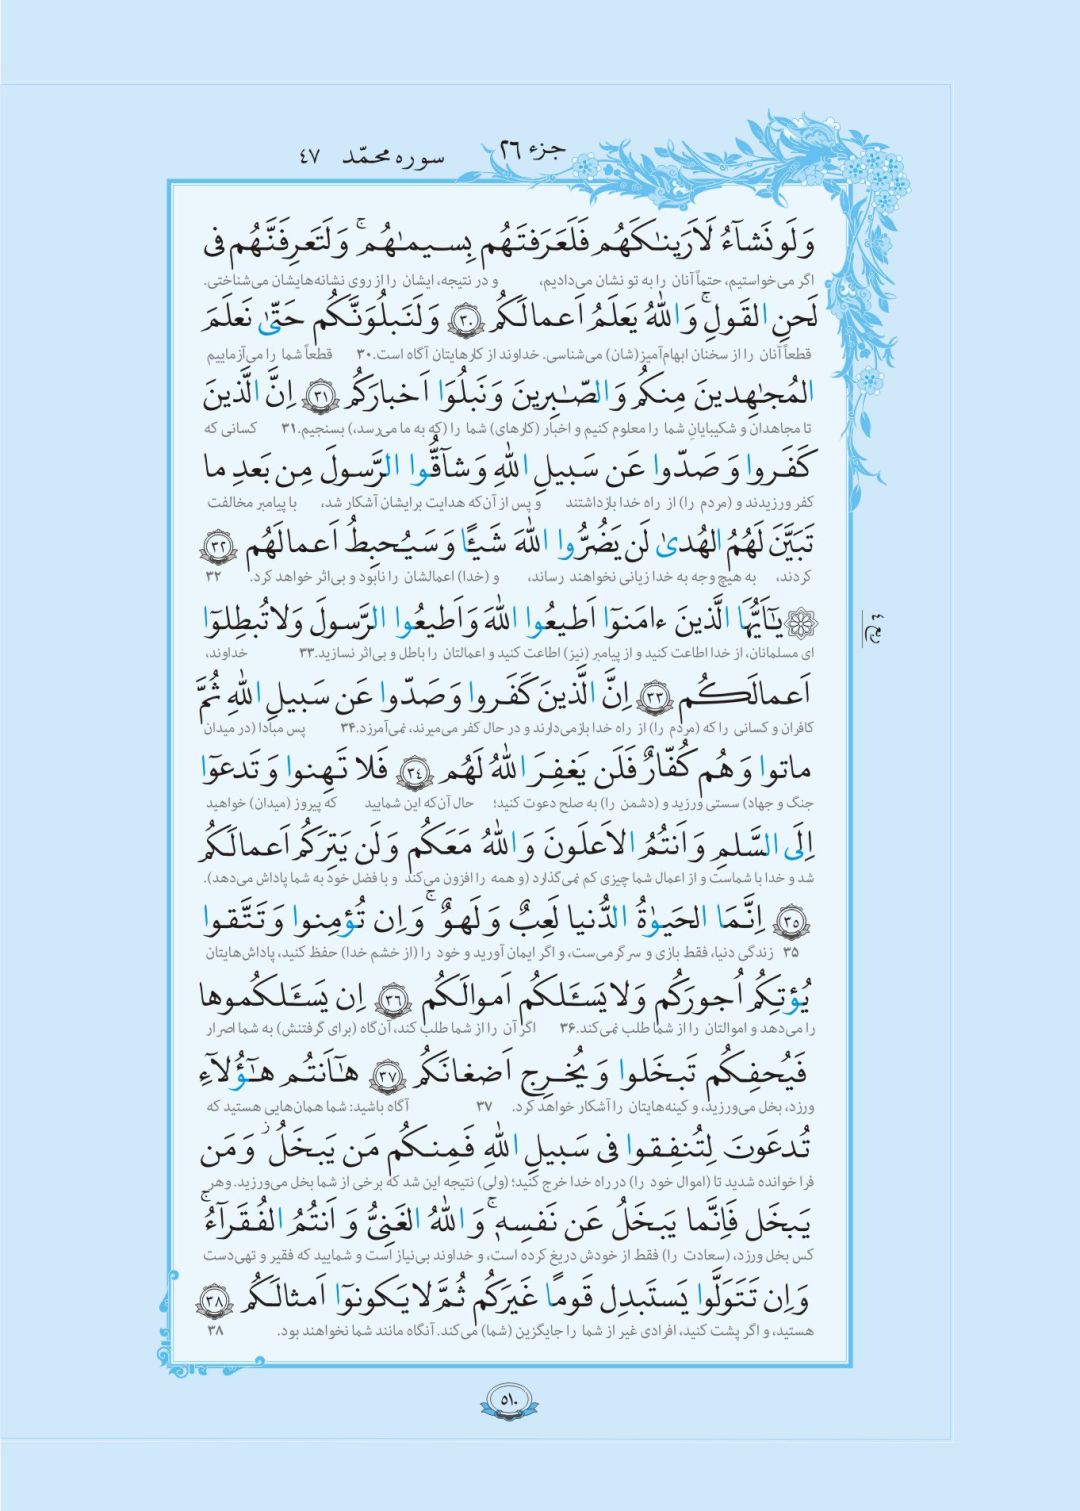 جزء ٢٦
سوره محمّد ٤٧
وَلَو نَشآءُ لَاَرَينٰكَهُم فَلَعَرَفتَهُم بِسيمٰهُم ۚ وَلَتَعرِفَنَّهُم فى
اگر می‌خواستیم، حتماً آنان را به تو نشان می‌دادیم، و در نتیجه، ایشان را از روی نشانه‌هایشان می‌شناختی.
لَحنِ القَولِ ۚ وَاللّٰهُ يَعلَمُ اَعمالَكُم ٣٠ وَلَنَبلُوَنَّكُم حَتّىٰ نَعلَمَ
قطعاً آنان را از سخنان ابهام‌آمیز(شان) می‌شناسی. خداوند از کارهایتان آگاه است.۳۰ قطعاً شما را می‌آزماییم
المُجٰهِدينَ مِنكُم وَالصّٰبِرينَ وَنَبلُوَا اَخبارَكُم ٣١ اِنَّ الَّذينَ
تا مجاهدان و شکیبایانِ شما را معلوم کنیم و اخبار (کارهای) شما را (که به ما می‌رسد،) بسنجیم.۳۱ کسانی که
كَفَروا وَصَدّوا عَن سَبيلِ اللّٰهِ وَشآقُّوا الرَّسولَ مِن بَعدِ ما
کفر ورزیدند و (مردم را) از راه خدا بازداشتند و پس از آن‌که هدایت برایشان آشکار شد، با پیامبر مخالفت
تَبَيَّنَ لَهُمُ الهُدىٰ لَن يَضُرُّوا اللّٰهَ شَيـًٔا وَسَيُحبِطُ اَعمالَهُم ٣٢
کردند، به هیچ وجه به خدا زیانی نخواهند رساند، و (خدا) اعمالشان را نابود و بی‌اثر خواهد کرد. ۳۲
يٰٓاَيُّهَا الَّذينَ ءامَنوٓا اَطيعُوا اللّٰهَ وَاَطيعُوا الرَّسولَ وَلا تُبطِلوٓا
ربع ٤
ای مسلمانان، از خدا اطاعت کنید و از پیامبر (نیز) اطاعت کنید و اعمالتان را باطل و بی‌اثر نسازید.۳۳ خداوند،
اَعمالَكُم ٣٣ اِنَّ الَّذينَ كَفَروا وَصَدّوا عَن سَبيلِ اللّٰهِ ثُمَّ
کافران و کسانی را که (مردم را) از راه خدا بازمی‌دارند و در حال کفر می‌میرند، نمی‌آمرزد.۳۴ پس مبادا (در میدان
ماتوا وَهُم كُفّارٌ فَلَن يَغفِرَ اللّٰهُ لَهُم ٣٤ فَلا تَهِنوا وَتَدعوٓا
جنگ و جهاد) سستی ورزید و (دشمن را) به صلح دعوت کنید؛ حال آن‌که این شمایید که پیروز (میدان) خواهید
اِلَى السَّلمِ وَاَنتُمُ الاَعلَونَ وَاللّٰهُ مَعَكُم وَلَن يَتِرَكُم اَعمالَكُم
شد و خدا با شماست و از اعمال شما چیزی کم نمی‌گذارد (و همه را افزون می‌کند و با فضل خود به شما پاداش می‌دهد).
٣٥ اِنَّمَا الحَيوٰةُ الدُّنيا لَعِبٌ وَلَهوٌ ۚ وَاِن تُؤمِنوا وَتَتَّقوا
۳۵ زندگی دنیا، فقط بازی و سرگرمی‌ست، و اگر ایمان آورید و خود را (از خشم خدا) حفظ کنید، پاداش‌هایتان
يُؤتِكُم اُجورَكُم وَلا يَسـَٔلكُم اَموالَكُم ٣٦ اِن يَسـَٔلكُموها
را می‌دهد و اموالتان را از شما طلب نمی‌کند.۳۶ اگر آن را از شما طلب کند، آن‌گاه (برای گرفتنش) به شما اصرار
فَيُحفِكُم تَبخَلوا وَيُخرِج اَضغانَكُم ٣٧ هٰٓاَنتُم هٰٓؤُلآءِ
ورزد، بخل می‌ورزید، و کینه‌هایتان را آشکار خواهد کرد. ۳۷ آگاه باشید: شما همان‌هایی هستید که
تُدعَونَ لِتُنفِقوا فى سَبيلِ اللّٰهِ فَمِنكُم مَن يَبخَلُ ز وَمَن
فرا خوانده شدید تا (اموال خود را) در راه خدا خرج کنید؛ (ولی) نتیجه این شد که برخی از شما بخل می‌ورزید. وهر
يَبخَل فَاِنَّما يَبخَلُ عَن نَفسِهٖ ۚ وَاللّٰهُ الغَنِىُّ وَاَنتُمُ الفُقَرآءُ ۚ
کس بخل ورزد، (سعادت را) فقط از خودش دریغ کرده است، و خداوند بی‌نیاز است و شمایید که فقیر و تهی‌دست
وَاِن تَتَوَلَّوا يَستَبدِل قَومًا غَيرَكُم ثُمَّ لا يَكونوٓا اَمثالَكُم ٣٨
هستید، و اگر پشت کنید، افرادی غیر از شما را جایگزین (شما) می‌کند. آنگاه مانند شما نخواهند بود. ۳۸
٥١٠